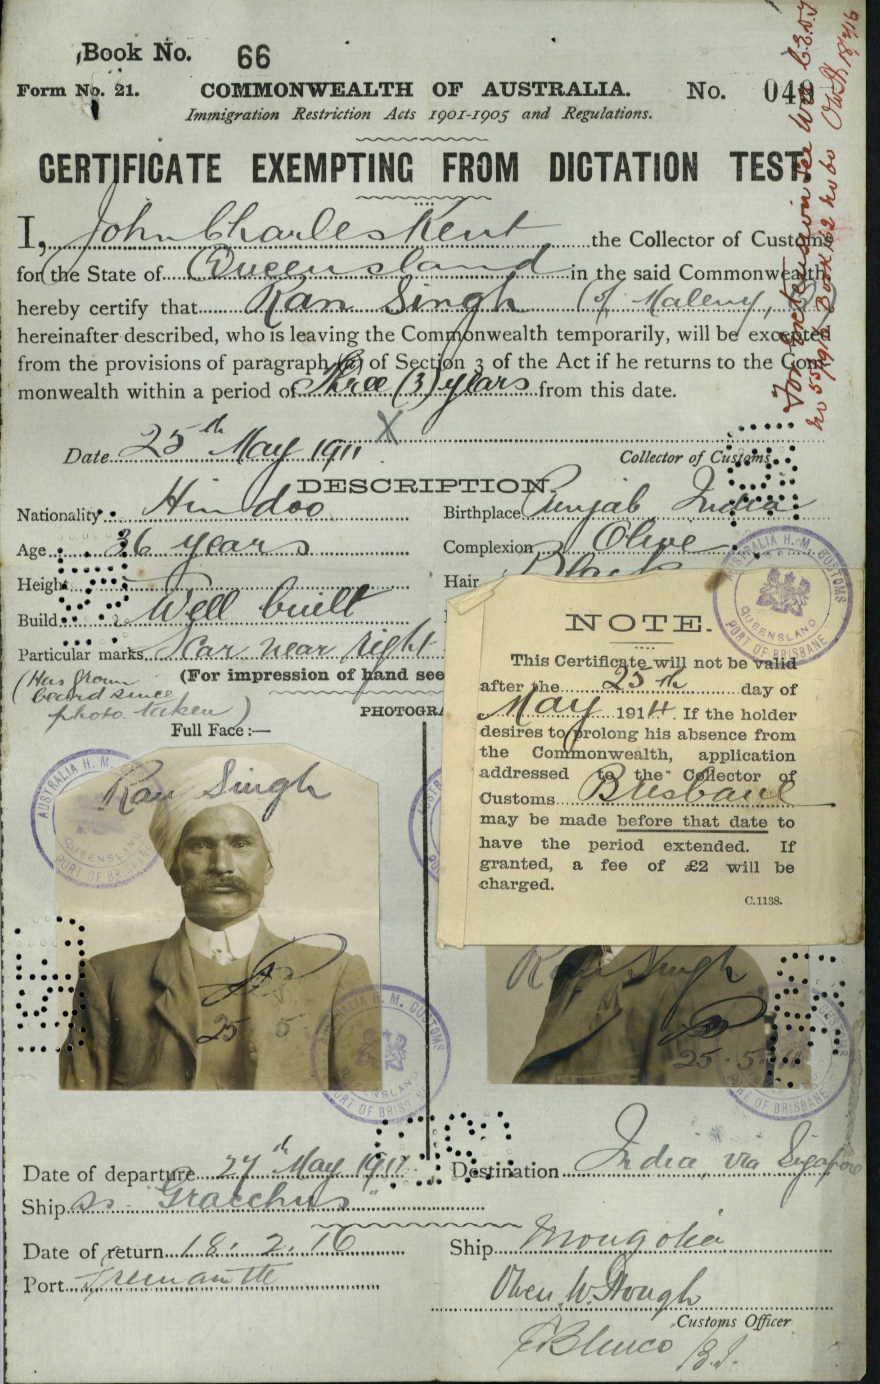 Book No. 66
Form No. 21. COMMONWEALTH OF AUSTRALIA. No. 04
Immigration Restriction Acts 1901-1905 and Regulations.
CERTIFICATE EXEMPTING FROM DICTATION TEST.
I, John Charles Kent the Collector of Customs
for the State of Queensland in the said Commonwealth,
hereby certify that Ran Singh (of Maleny,
hereinafter described, who is leaving the Commonwealth temporarily, will be excepted
from the provisions of paragraph (a) of Section 3 of the Act if he returns to the Com-
monwealth within a period of three (3) years from this date.
Date 25th May 1911 X
Collector of Customs.
DESCRIPTION.
Nationality Hindoo Birthplace Punjab India
Age 36 years Complexion Olive
Height Hair Black
Build Well built
Particular marks Scar near right
(For impression of hand see
(Has grown
beard since
photo taken)
PHOTOGRA
Full Face:—
NOTE.
This Certificate will not be valid
after the 25th day of
May 1914. If the holder
desires to prolong his absence from
the Commonwealth, application
addressed to the Collector of
Customs Brisbane
may be made before that date to
have the period extended. If
granted, a fee of £2 will be
charged.
C.1138.
AUSTRALIA H. M. CUSTOMS
QUEENSLAND
PORT OF BRISBANE
Ran Singh
25 5
AUSTRALIA H. M.
QUEENSLAND
PORT OF BRIS
H. M. CUSTOMS
QUEENSLAND
PORT OF BRISB
Ran Singh
25.5.11
PORT OF BRISBANE
Date of departure 27th May 1911 Destination India, via Sigapore
Ship ss "Gracchus"
Date of return 18.2.16 Ship Mongolia
Port Fremantle
Customs Officer
For extension see
Book